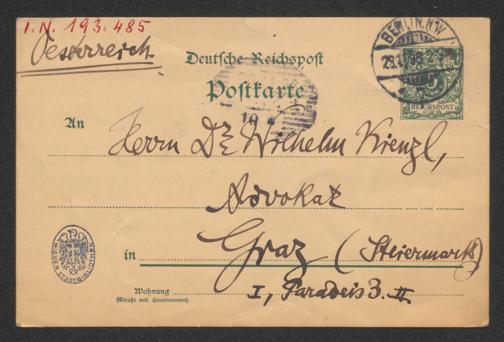 I.N. 193.485
Oesterreich
Deutsche Reichspost
Postkarte
BERLIN. N.W.
REICHSPOST
An
Herrn Dr. Wilhelm Kienzl,
Advokat
in Graz (Steiermark)
Wohnung
(Straße und Hausnummer)
I, Paradeis 3. II